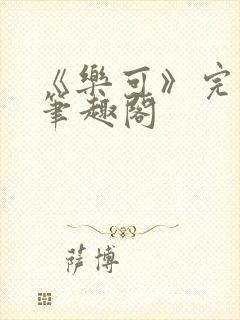 《樂可》完
筆趣閣
薩博